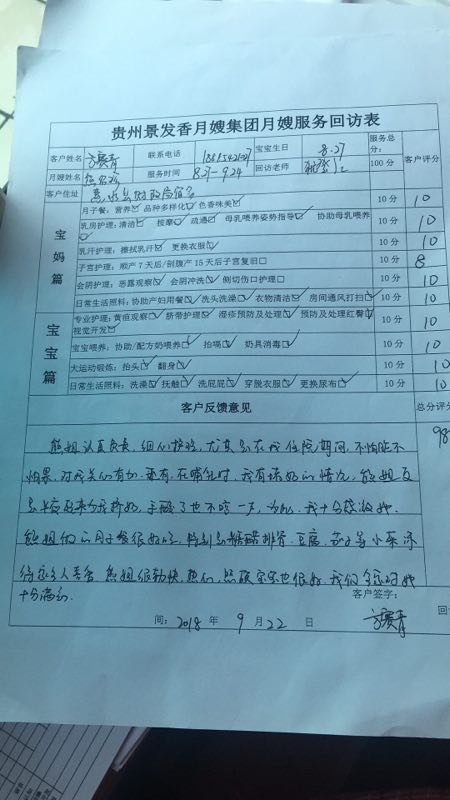 贵州景发香月嫂集团月嫂服务回访表
客户姓名 联系电话 宝宝生日 8.27 服务总分: 客户评分
月嫂姓名 服务时间 8.27-9.24 回访老师 100分
客户住址
宝妈篇
月子餐: 营养☑ 品种多样化☑ 色香味美☑ 10分 10
乳房护理: 清洁☑ 按摩☑ 疏通☑ 母乳喂养姿势指导☑ 协助母乳喂养☑ 10分 10
乳汗护理: 擦拭乳汗☑ 更换衣服☑ 10分 10
子宫护理: 顺产7天后/剖腹产15天后子宫复旧□ 10分 8
会阴护理: 恶露观察☑ 会阴冲洗☑ 侧切伤口护理□ 10分 10
日常生活照料: 协助产妇用餐☑ 洗头洗澡☑ 衣物清洁☑ 房间通风打扫☑ 10分 10
宝宝篇
专业护理: 黄疸观察☑ 脐带护理☑ 湿疹预防及处理☑ 预防及处理红臀☑ 视觉开发☑ 10分 10
宝宝喂养: 协助/配方奶喂养☑ 拍嗝☑ 奶具消毒☑ 10分 10
大运动锻炼: 抬头☑ 翻身☑ 10分 10
日常生活照料: 洗澡☑ 抚触☑ 洗屁屁☑ 穿脱衣服☑ 更换尿布☑ 10分 10
客户反馈意见 总分评分
98
熊姐认真负责,细心护理,尤其是在我住院期间,不怕脏不
怕累,对我关心有加.还有,在哺乳时,我有堵奶的情况,熊姐
来为我挤奶,手酸了也不吭一声,为此,我十分感激她.
熊姐做的月子餐很好吃,特别是糖醋排骨、豆腐、
熊姐很勤快,热心,照顾宝宝也很好.我们全家对她
十分满意.
客户签字:
间: 2018 年 9 月 22 日 回